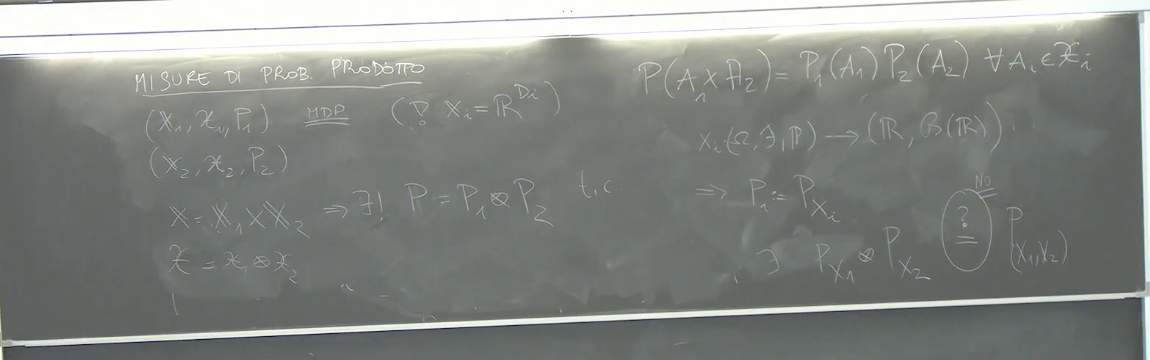 MISURE DI PROB. PRODOTTO
(X₁, 𝒳₁, P₁) MDP (! Xᵢ = ℝ^{Dᵢ})
(X₂, 𝒳₂, P₂)
X = X₁ × X₂ ⇒ ∃! P = P₁ ⊗ P₂ t.c.
𝒳 = 𝒳₁ ⊗ 𝒳₂
P(A₁ × A₂) = P₁(A₁) P₂(A₂) ∀ Aᵢ ∈ 𝒳ᵢ
Xᵢ (Ω, ℱ, ℙ) → (ℝ, ℬ(ℝ))
⇒ Pᵢ := P_{Xᵢ}
NO
∃ P_{X₁} ⊗ P_{X₂} ≟ P_{(X₁,X₂)}